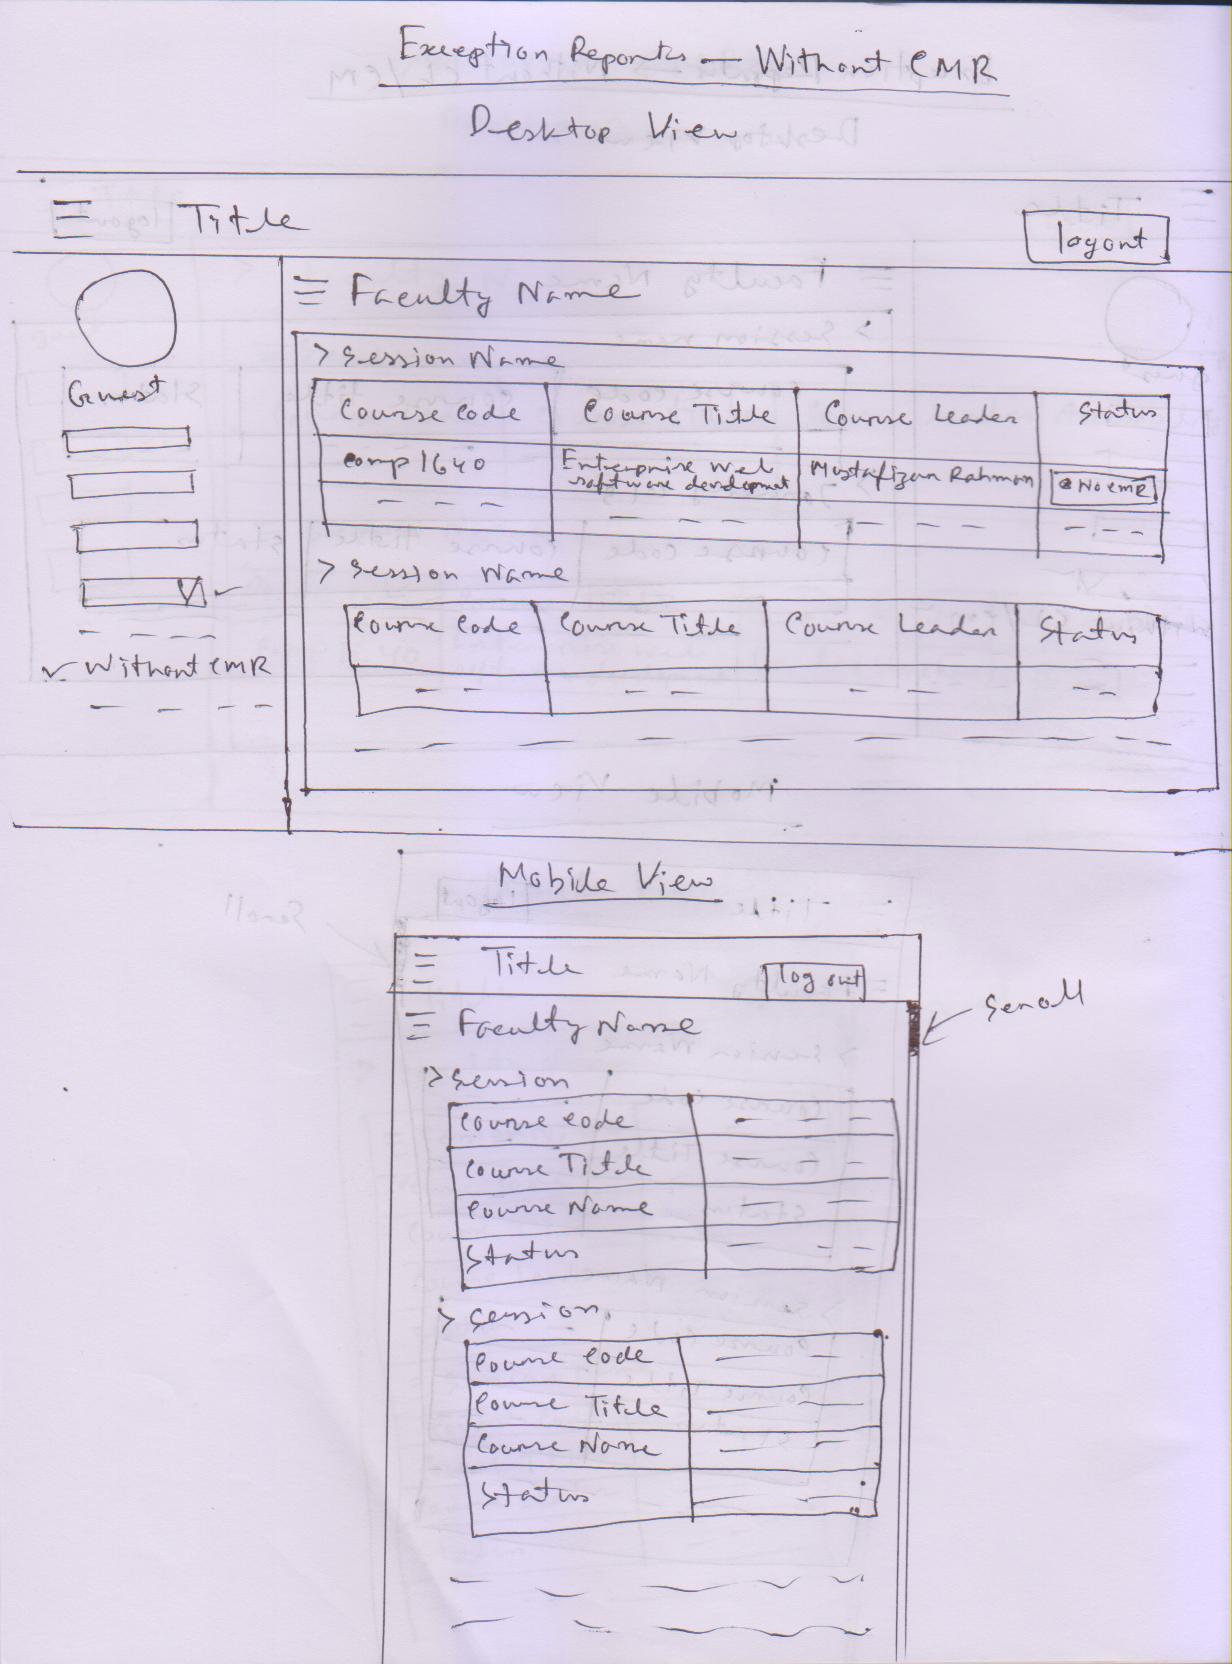 Exception Reports — Without CMR
Desktop View
Title
logout
Guest
Without CMR
Faculty Name
> Session Name
Course Code Course Title Course Leader Status
comp1640 Enterprise Web software development Mostafizur Rahman No CMR
> Session Name
Course Code Course Title Course Leader Status
Mobile View
Title
log out
Scroll
Faculty Name
> Session
Course Code
Course Title
Course Name
Status
> Session
Course Code
Course Title
Course Name
Status